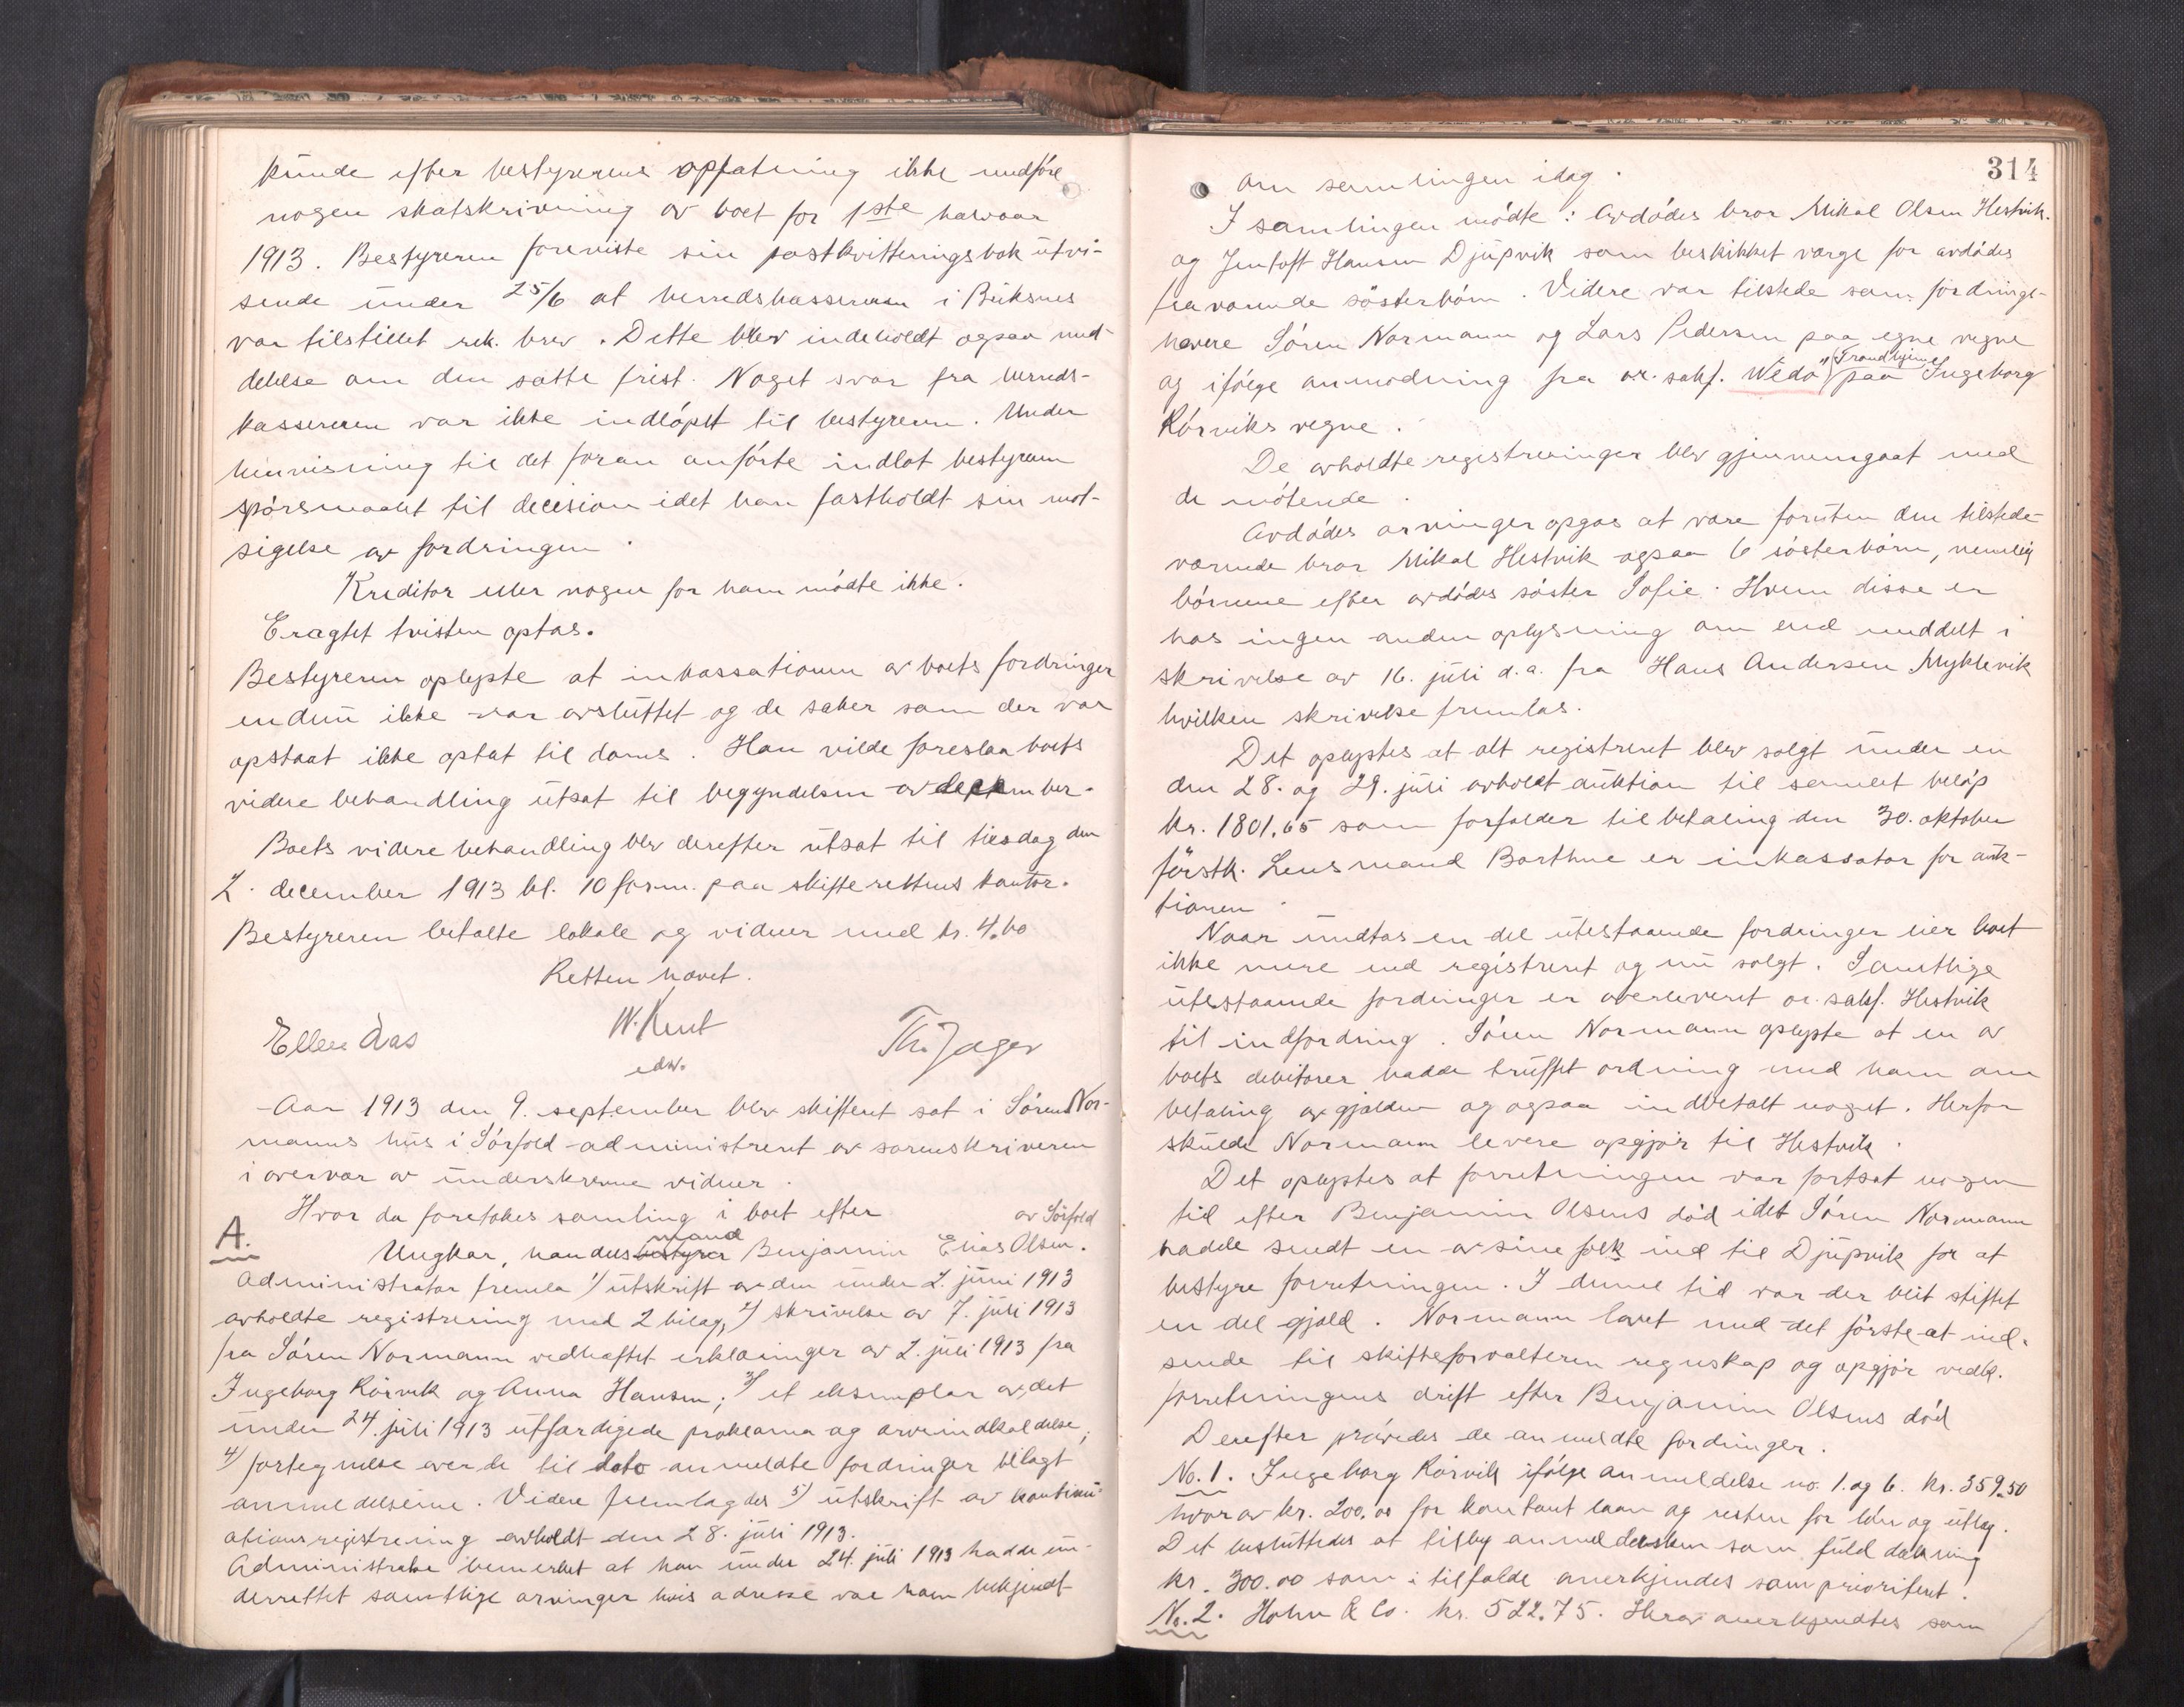 kunde efter bestyrerens opfatning ikke medføre
nogen skatskrivning av boet for 1ste halvaar
1913. Bestyreren foreviste sin postkvitteringsbok utvi-
sende under 25/6 at herredskassereren i Buksnes
var tilstillet rek. brev. Dette blev indeholdt ogsaa med-
delelse om den satte frist. Noget svar fra herreds-
kassereren var ikke indløpet til bestyreren. Under
henvisning til det foran anførte indlot bestyreren
spørsmaalet til decision idet han fastholdt sin mot-
sigelse av fordringen.
Kreditor eller nogen for ham mødte ikke.
Eragtet tvisten optas.
Bestyreren oplyste at inkassationen av boets fordringer
endnu ikke var avsluttet og de saker som der var
opstaat ikke optat til doms. Han vilde foreslaa boets
videre behandling utsat til begyndelsen av december.
Boets videre behandling blev derefter utsat til tirsdag den
2. december 1913 kl. 10 form. paa skifterettens kontor.
Bestyreren betalte lokale og vidner med kr. 4.60
Retten hævet.
Ellen Aas W. Kent Th. Jager
edv.
Aar 1913 den 9. september blev skifteret sat i Søren Nor-
manns hus i Sørfold administreret av sorenskriveren
i overvær av underskrevne vidner.
Hvor da foretokes samling i boet efter
av Sørfold
A.
mand
Ungkar, handelsbestyrer Benjamin Elias Olsen.
Administrator fremla 1) utskrift av den under 2. juni 1913
avholdte registrering med 2 bilag, 2) skrivelse av 7. juli 1913
fra Søren Normann vedhæftet erklæringer av 2. juli 1913 fra
Ingeborg Rørvik og Anna Hansen; 3) et eksemplar av det
under 24. juli 1913 utfærdigede proklama og arveindkaldelse,
4) fortegnelse over de til dato anmeldte fordringer bilagt
anmeldelserne. Videre fremlagdes 5) utskrift av kontinu-
ationsregistrering avholdt den 28. juli 1913.
Administrator bemerket at han under 24. juli 1913 hadde un-
derrettet samtlige arvinger hvis adresse var ham bekjendt
314
om samlingen idag.
I samlingen mødte: Avdødes bror Mikal Olsen Hestvik.
og Jentoft Hansen Djupvik som beskikket værge for avdødes
fraværende søsterbørn. Videre var tilstede som fordrings-
havere Søren Normann og Lars Pedersen paa egne vegne
Trondhjem
og ifølge anmodning fra or. sakf. Wedø paa Ingeborg
Rørviks vegne.
De avholdte registreringer blev gjennemgaat med
de møtende.
Avdødes arvinger opgas at være foruten den tilstede-
værende bror Mikal Hestvik ogsaa 6 søsterbørn, nemlig
børnene efter avdødes søster Sofie. Hvem disse er
has ingen anden oplysning om end meddelt i
skrivelse av 16. juli d.a. fra Hans Andersen Myklevik
hvilken skrivelse fremlas.
Det oplystes at alt registreret blev solgt under en
den 28. og 29. juli avholdt auktion til samlet beløp
kr. 1801,65 som forfalder til betaling den 30. oktober
førstk. Lensmand Barthne er inkassator for auk-
tionen.
Naar undtas en del utestaaende fordringer eier boet
ikke mere end registreret og nu solgt. Samtlige
utestaaende fordringer er overleveret or. sakf. Hestvik
til indfordring. Søren Normann oplyste at en av
boets debitorer hadde truffet ordning med ham om
betaling av gjælden og ogsaa indbetalt noget. Herfor
skulde Normann levere opgjør til Hestvik.
Det oplystes at forretningen var fortsat nogen
tid efter Benjamin Olsens død idet Søren Normann
hadde sendt en av sine folk ind til Djupvik for at
bestyre forretningen. I denne tid var der blit stiftet
en del gjæld. Normann lovet med det første at ind-
sende til skifteforvalteren regnskap og opgjør vedk.
forretningens drift efter Benjamin Olsens død
Derefter prøvedes de anmeldte fordringer.
No. 1. Ingeborg Rørvik ifølge anmeldelse no. 1. og 6. kr. 359.50
hvorav kr. 200.00 for kontant laan og resten for løn og utlæg.
Det besluttedes at tilby anmeldersken som fuld dækning
kr. 300.00 som i tilfælde anerkjendes som prioritert.
No. 2. Hohn & Co. kr. 522.75. Herav anerkjendtes som